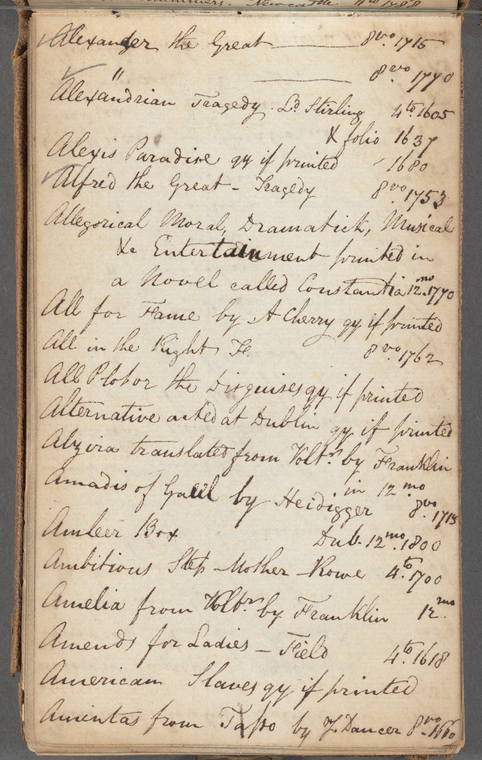 Alexander the Great 8vo. 1715
" 8vo 1770
Alexandrian Tragedy. Ld. Stirling 4to. 1605
X folio 1637
Alexis Paradise qy if printed - 1680
Alfred the Great - Tragedy 8vo. 1753
Allegorical Moral, Dramatick, Musical
&c Entertainment printed in
a Novel called Constantia 12mo. 1770
All for Fame by A Cherry qy if printed
All in the Right Fe 8vo. 1762
All Plot or the Disguises qy if printed
Alternative acted at Dublin qy if printed
Alzira translated from Voltr. by Franklin
in 12mo
Amadis of Gaul by Heidigger 8vo. 1715
Amber Box Dub. 12mo. 1800
Ambitious Step-Mother - Rowe 4to. 1700
Amelia from Voltr by Franklin 12mo.
Amends for Ladies - Field 4to. 1618
American Slaves qy if printed
Amintas from Tasso by J. Dancer 8vo. 1660